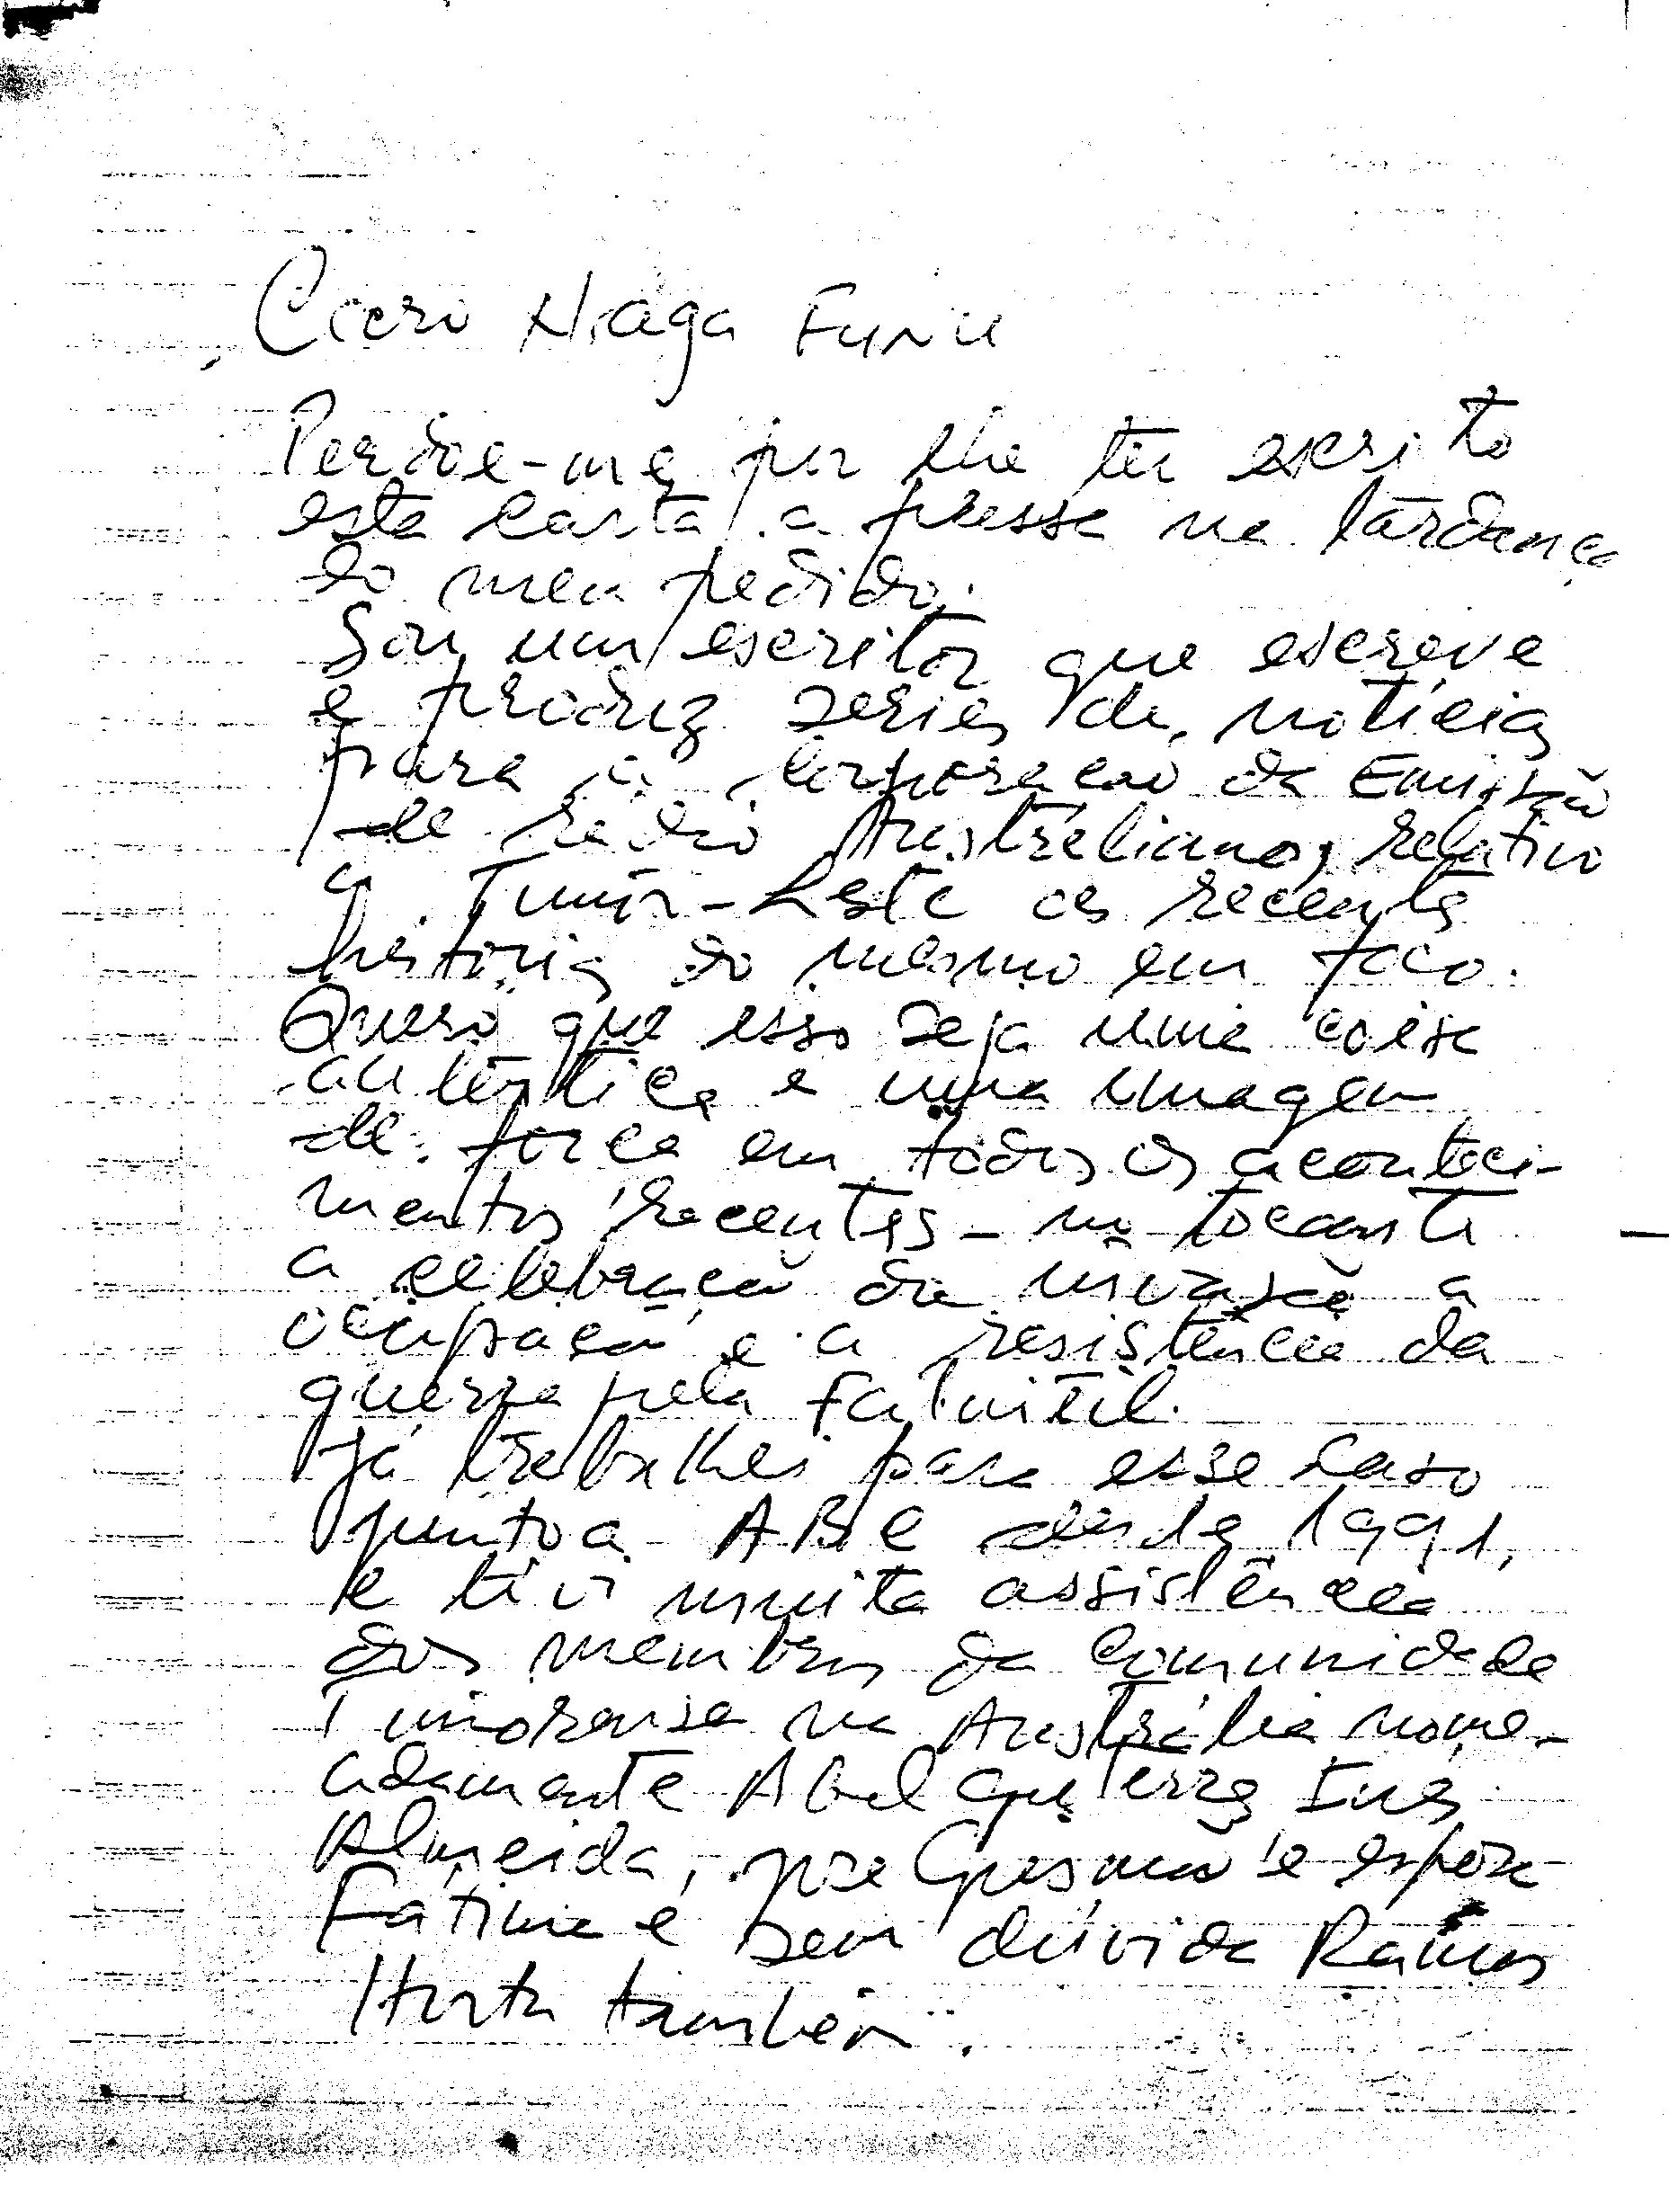 Caro Niaga Funu
Perdoe-me por lhe ter escrito
esta carta a pressa na tardança
do meu pedido.
Sou um escritor que escreve
e produz series de noticias
para a Corporacao da Emissão
de rádio Australiano, relativo
a Timor-Leste as recente
historia do mesmo em foco.
Quero que isso seja uma coisa
autêntica e uma imagem
de força em todos os aconteci-
mentos recentes - no tocante
a celebração da invasão a
ocupação e a resistência da
guerra pela Falintil.
Já trabalhei para esse caso
junto a ABC desde 1991,
e tive muita assistência
dos membros da comunidade
Timorense na Austrália nome-
adamente Abel Guterres Ines
Almeida, jose Gusmão e esposa
Fátima e sem dúvida Ramos
Horta também.